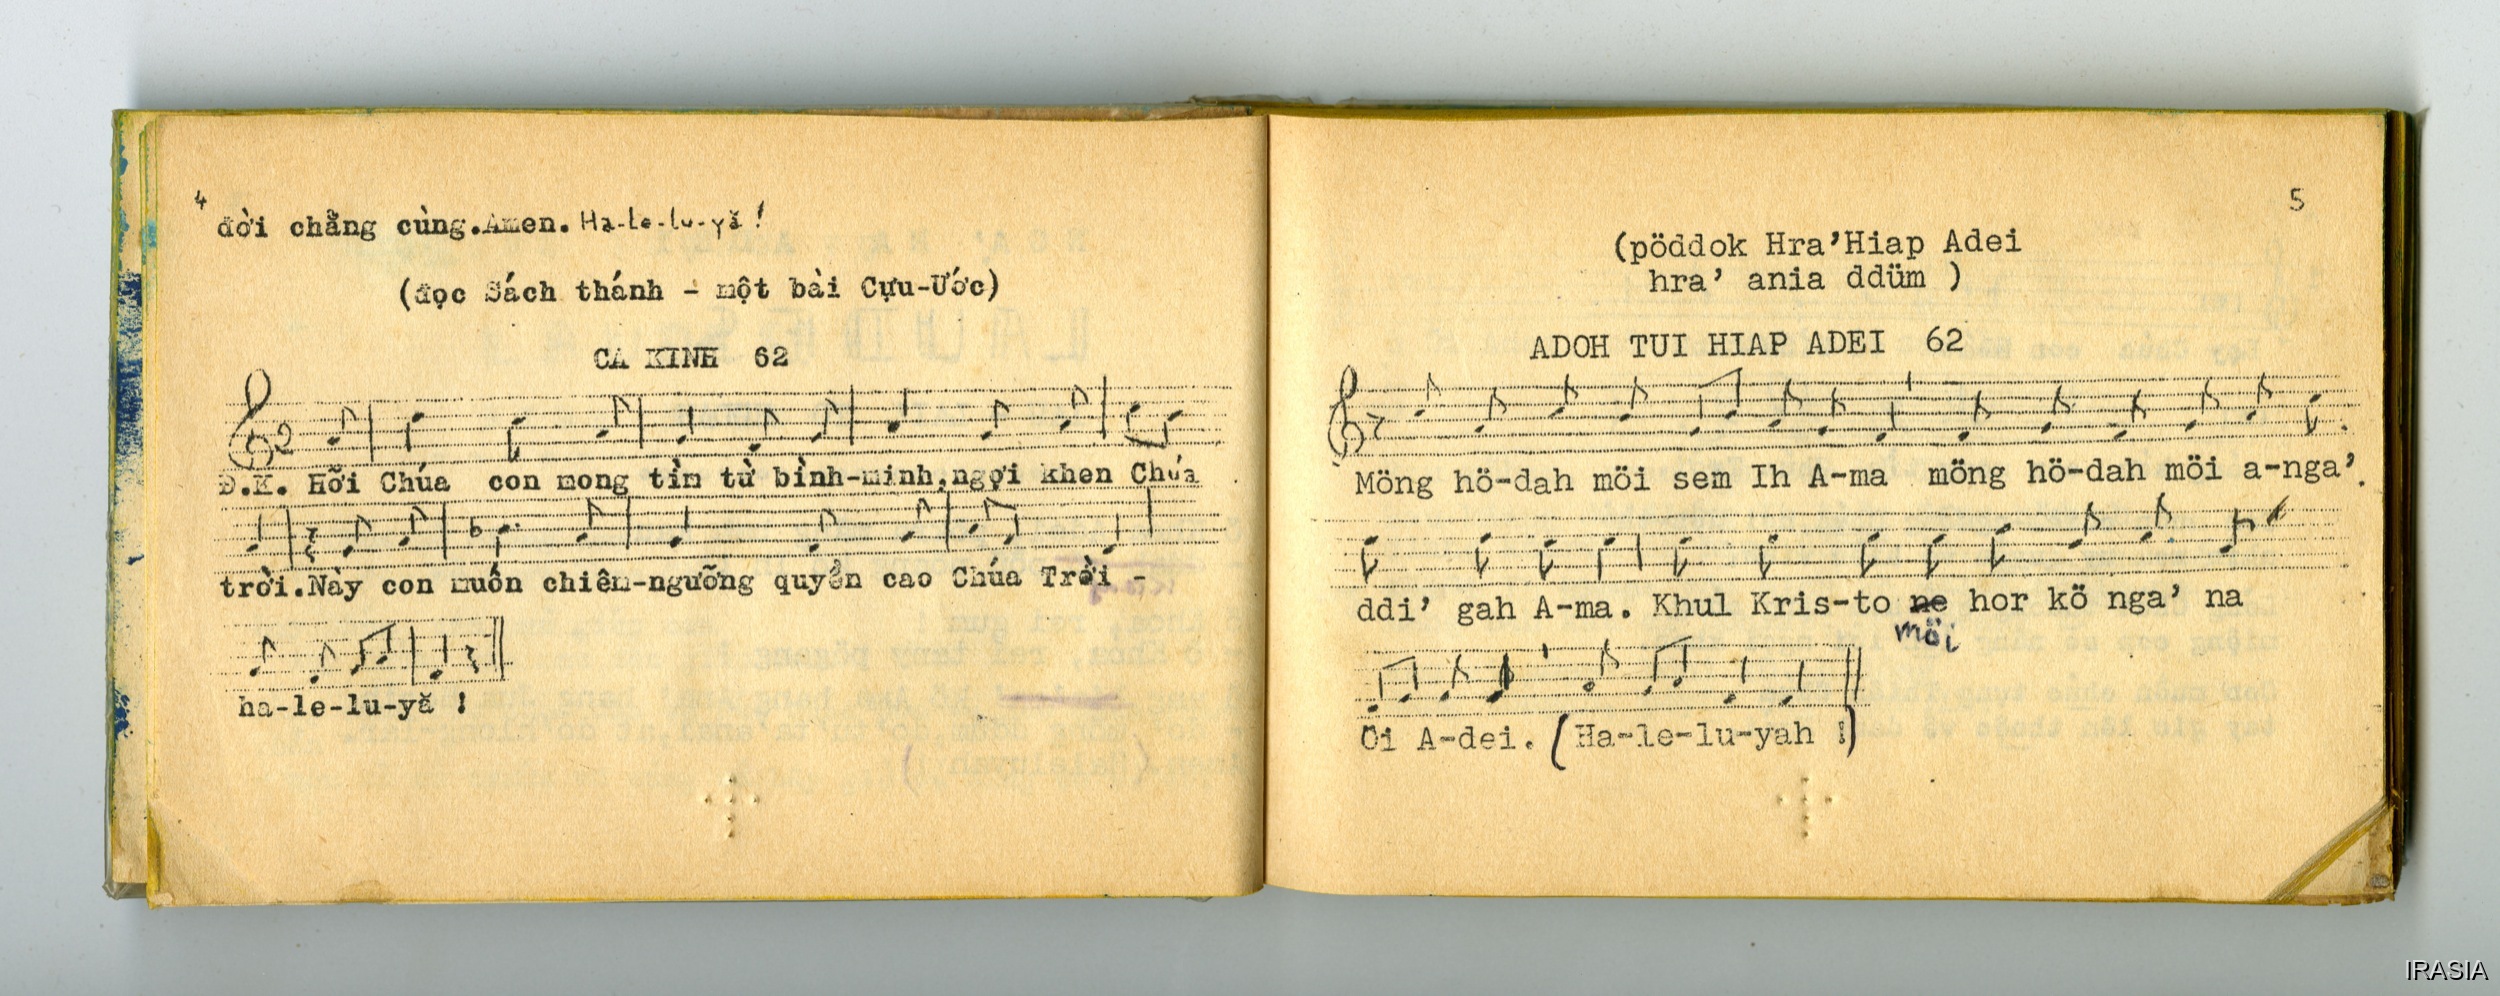 4
đời chẳng cùng.Amen. Ha-le-lu-yă !
(đọc Sách thánh - một bài Cựu-Ước)
CA KINH 62
Đ.K. Hỡi Chúa con mong tìm từ bình-minh,ngợi khen Chúa
trời.Này con muốn chiêm-ngưỡng quyền cao Chúa Trời -
ha-le-lu-yă !
5
(pöddok Hra'Hiap Adei
hra' ania ddüm )
ADOH TUI HIAP ADEI 62
Möng hö-dah möi sem Ih A-ma möng hö-dah möi a-nga'.
ddi' gah A-ma. Khul Kris-to ne hor kö nga' na
möi
Öi A-dei. (Ha-le-lu-yah !)
IRASIA